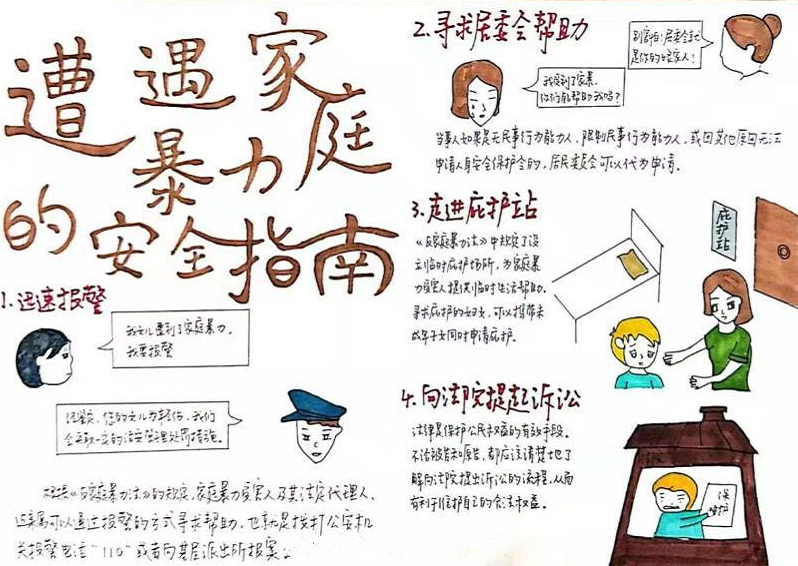 遭遇家庭
暴力
的安全指南
1.迅速报警
我女儿遭到了家庭暴力，
我要报警
经鉴定，您的女儿为轻伤，我们
会采取一定的治安管理处罚措施。
根据《反家庭暴力法》的规定，家庭暴力受害人及其法定代理人、
近亲属可以通过报警的方式寻求帮助，也就是拨打公安机
关报警电话“110”或者向基层派出所报案。
2.寻求居委会帮助
我受到了家暴，
你们能帮助我吗？
别害怕！居委会就
是你的娘家人！
当事人如果是无民事行为能力人、限制民事行为能力人，或因其他原因无法
申请人身安全保护令的，居民委员会可以代为申请。
3.走进庇护站
《反家庭暴力法》中规定了设
立临时庇护场所，为家庭暴
力受害人提供临时生活帮助。
寻求庇护的妇女，可以携带未
成年子女同时申请庇护。
庇护站
4.向法院提起诉讼
法律是保护公民权益的有效手段。
不论被告和原告，都应该清楚地了
解向法院提出诉讼的流程，从而
有利于维护自己的合法权益。
法院
保
护